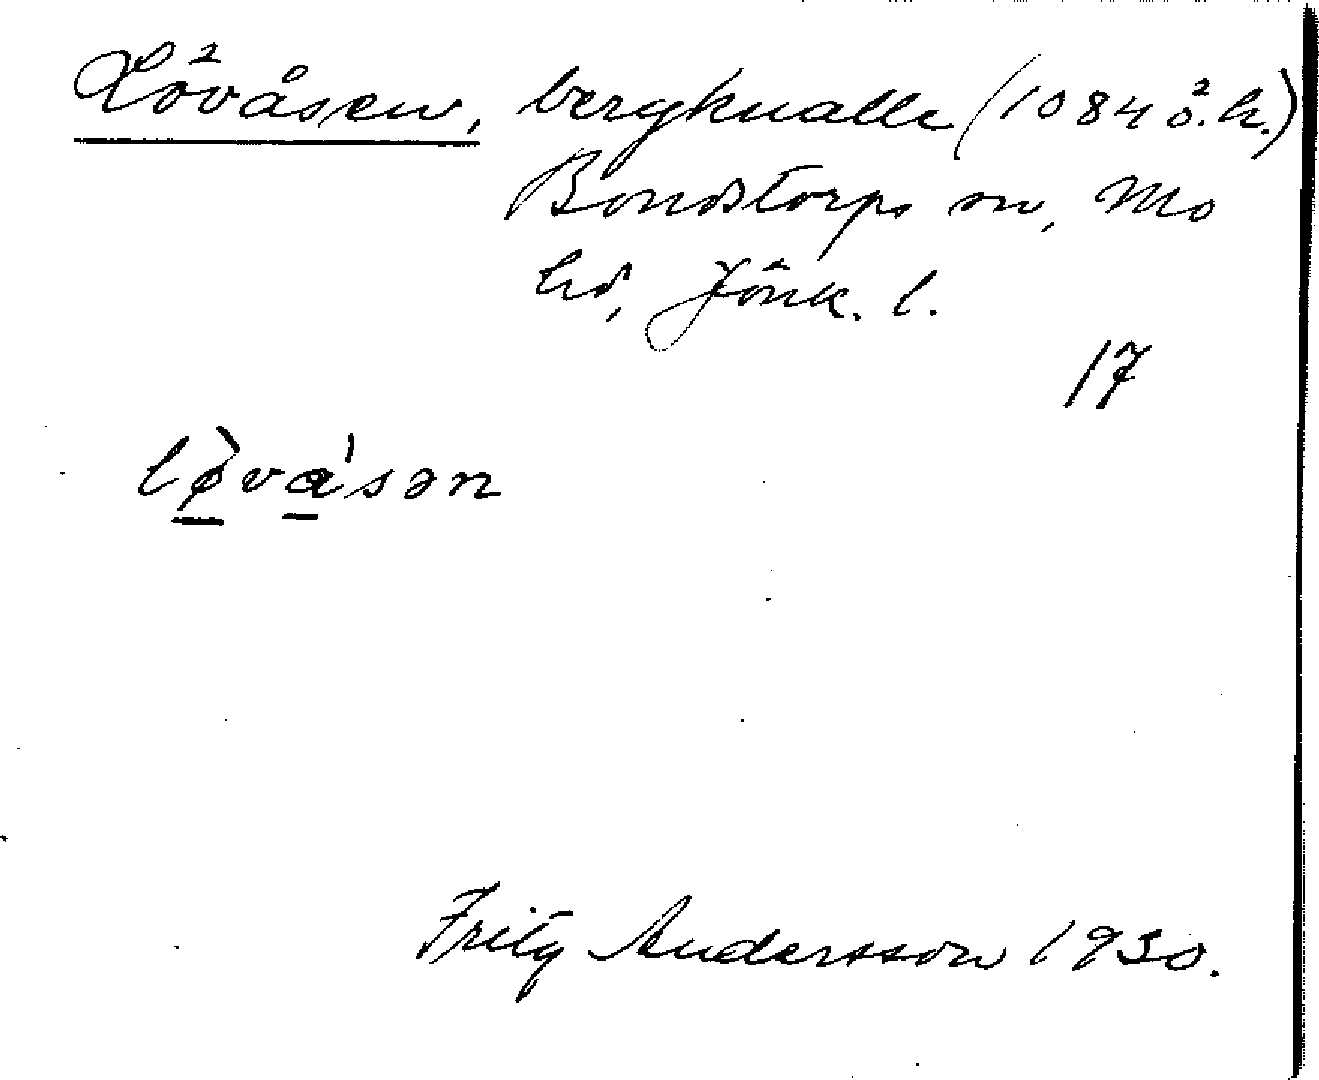 Lövåsen, bergknalle (1084 ö. h.)
Bondstorps sn, Mo
hd, Jönk. l.
17
lø̀vɑ'sən
Fritz Andersson 1930.